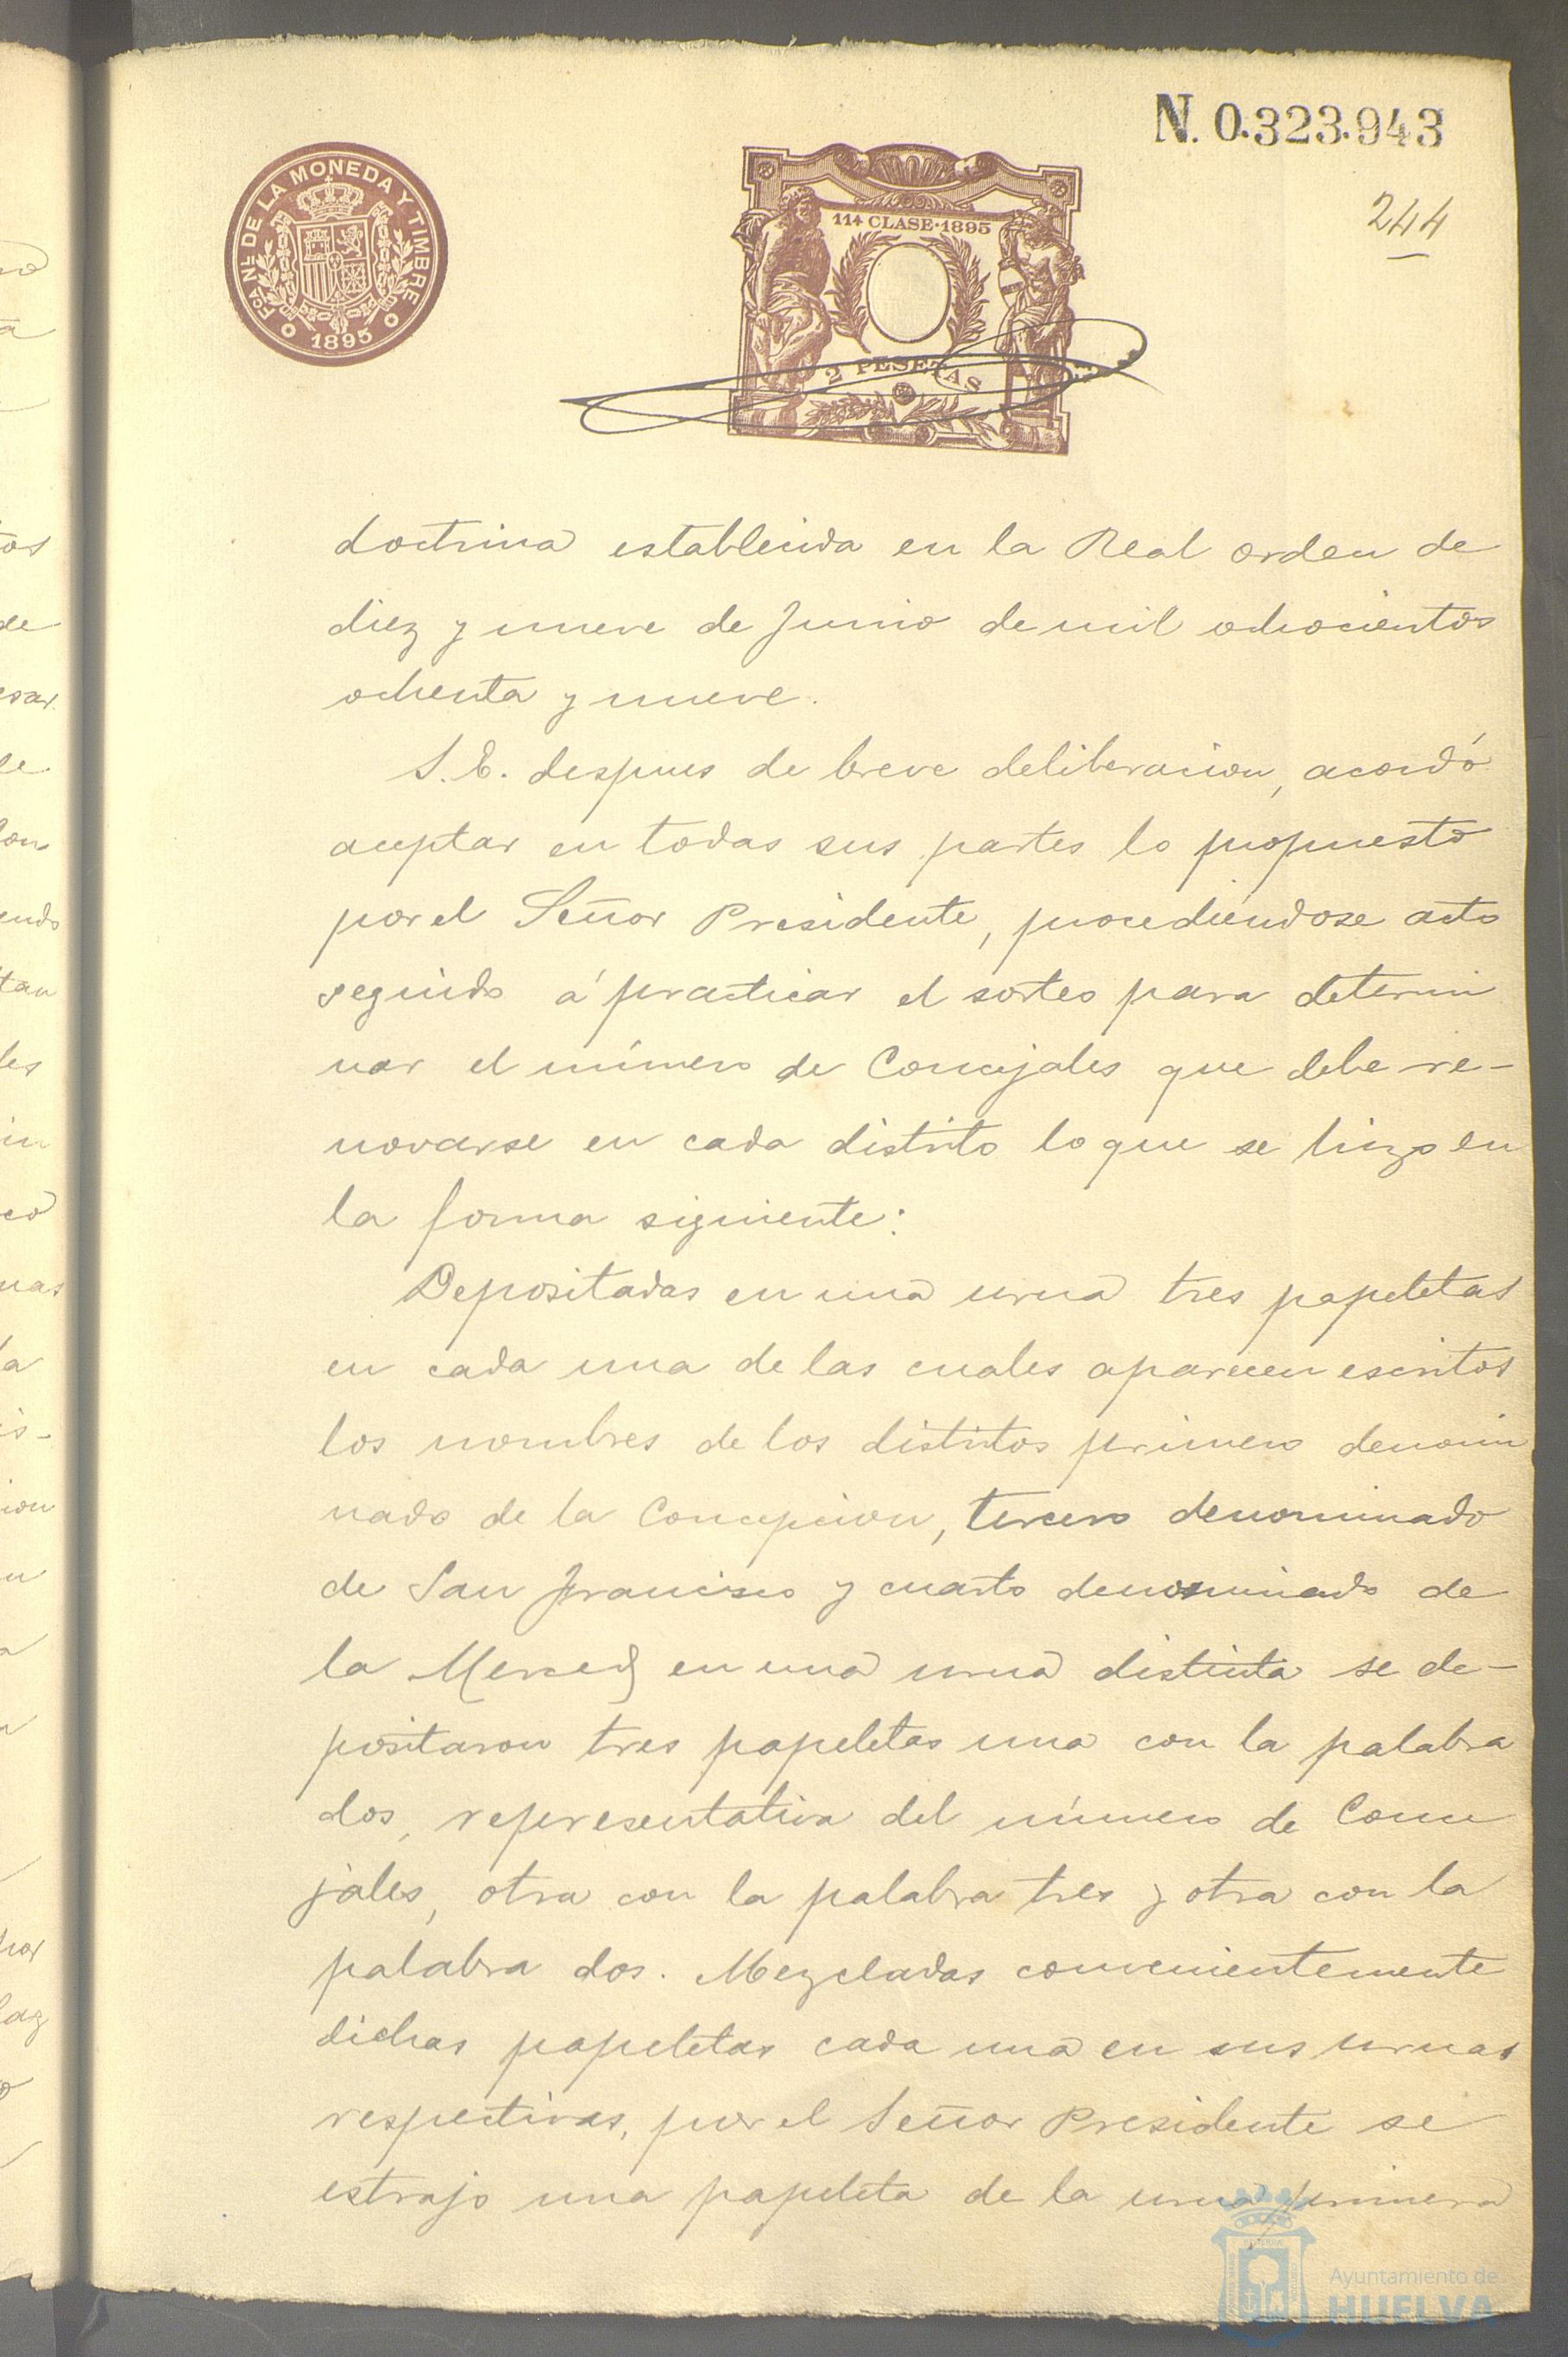 N. 0.323.943
244
FCA NL DE LA MONEDA Y TIMBRE
1895
11ª CLASE·1895
2 PESETAS
doctrina establecida en la Real orden de
diez y nueve de Junio de mil ochocientos
ochenta y nueve.
S. E. despues de breve deliberacion, acordó
aceptar en todas sus partes lo propuesto
por el Señor Presidente, procediéndose acto
seguido á practicar el sorteo para determi
nar el número de Concejales que debe re-
novarse en cada distrito lo que se hizo en
la forma siguiente:
Depositadas en una urna tres papeletas
en cada una de las cuales aparecen escritos
los nombres de los distritos primero denomi
nado de la Concepcion, tercero denominado
de San Francisco y cuarto denominado de
la Merced en una urna distinta se de-
positaron tres papeletas una con la palabra
dos, representativa del número de Conce
jales, otra con la palabra tres y otra con la
palabra dos. Mezcladas convenientemente
dichas papeletas cada una en sus urnas
respectivas, por el Señor Presidente se
estrajo una papeleta de la urna primera
Ayuntamiento de
HUELVA